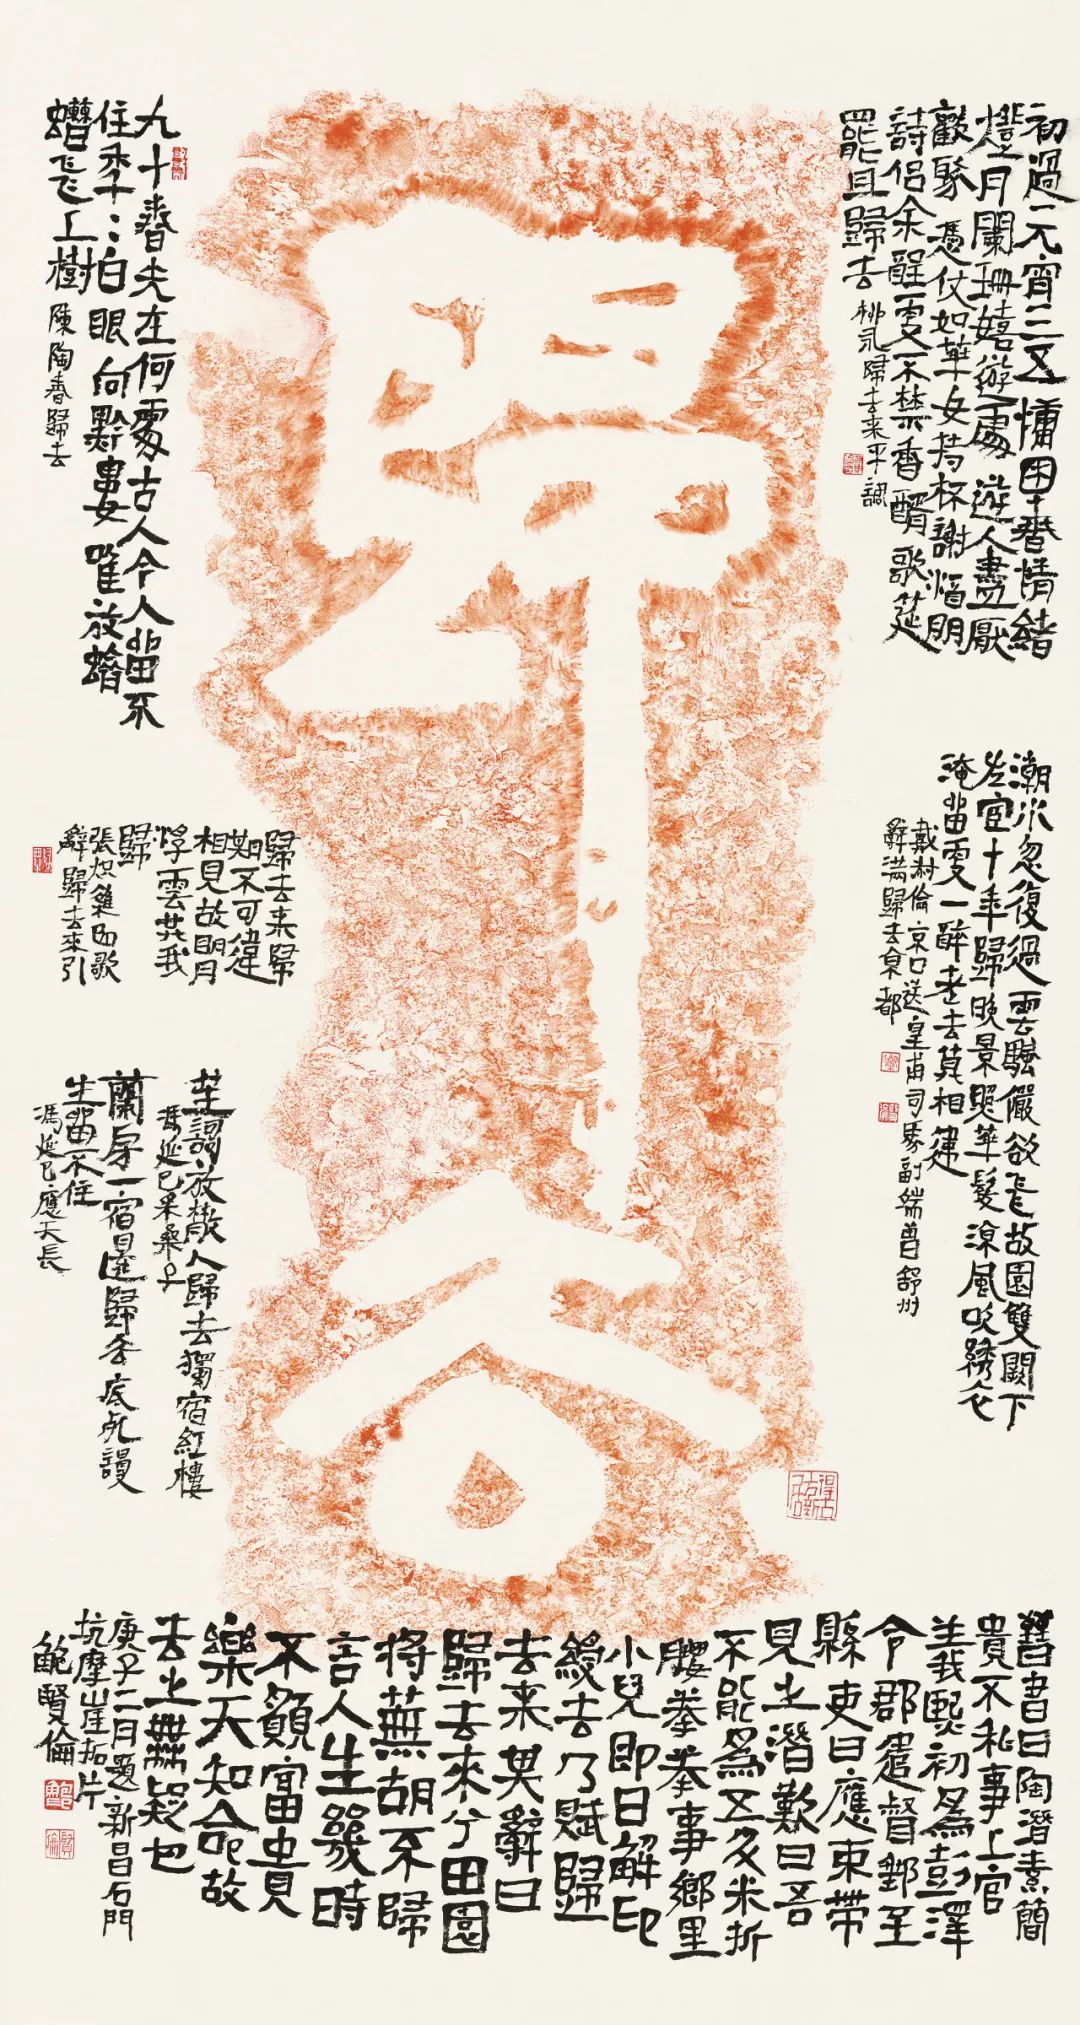 歸去
初過元宵三五慵困春情緒
燈月闌珊嬉遊處遊人盡厭
歡聚憑仗如華女持杯謝酒朋
詩侶余酲更不禁香醑歌筵
罷且歸去 柳永歸去來平調
潮水忽復過雲颿儼欲飛故園雙闕下
左宦十年歸晚景照華髮涼風吹繡衣
淹留更一醉老去莫相違
戴叔倫京口送皇甫司馬副端曾舒州
辭滿歸去東都
九十春光在何處古人今人留不
住季々白眼向黔婁唯放蠐
螬飛上樹 陳陶春歸去
歸去来歸
期不可違
相見故明月
浮雲共我
歸
張熾雜曲歌
辭歸去來引
笙謌放散人歸去獨宿紅樓
馮延巳采桑子
蘭房一宿還歸去底死謾
生留不住
馮延巳應天長
舊書曰陶潛素簡
貴不私事上官
義熙初為彭澤
令郡遣督郵至
縣吏曰應束帶
見之潛歎曰吾
不能為五斗米折
腰拳拳事鄉里
小兒即日解印
綬去乃賦歸
去来其辭曰
歸去來兮田園
將蕪胡不歸
言人生幾時
不顧富貴
樂天知命故
去之無疑也
庚子二月題新昌石門
坑摩崖拓片
鮑賢倫